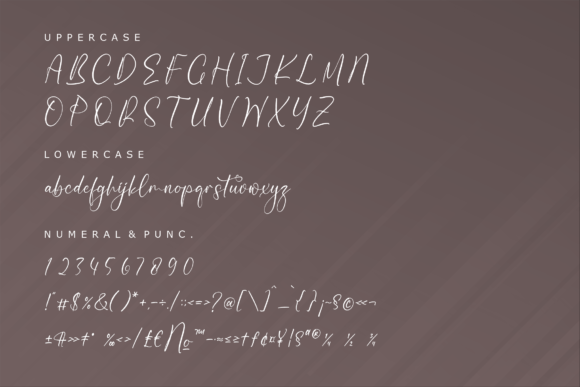 UPPERCASE
ABCDEFGHIJKLMN
OPQRSTUVWXYZ
LOWERCASE
abcdefghijklmnopqrstuvwxyz
NUMERAL & PUNC.
1234567890
!"#$%&()*+,-÷./:;<=>?@[\]^_`{}¡~§©«¬